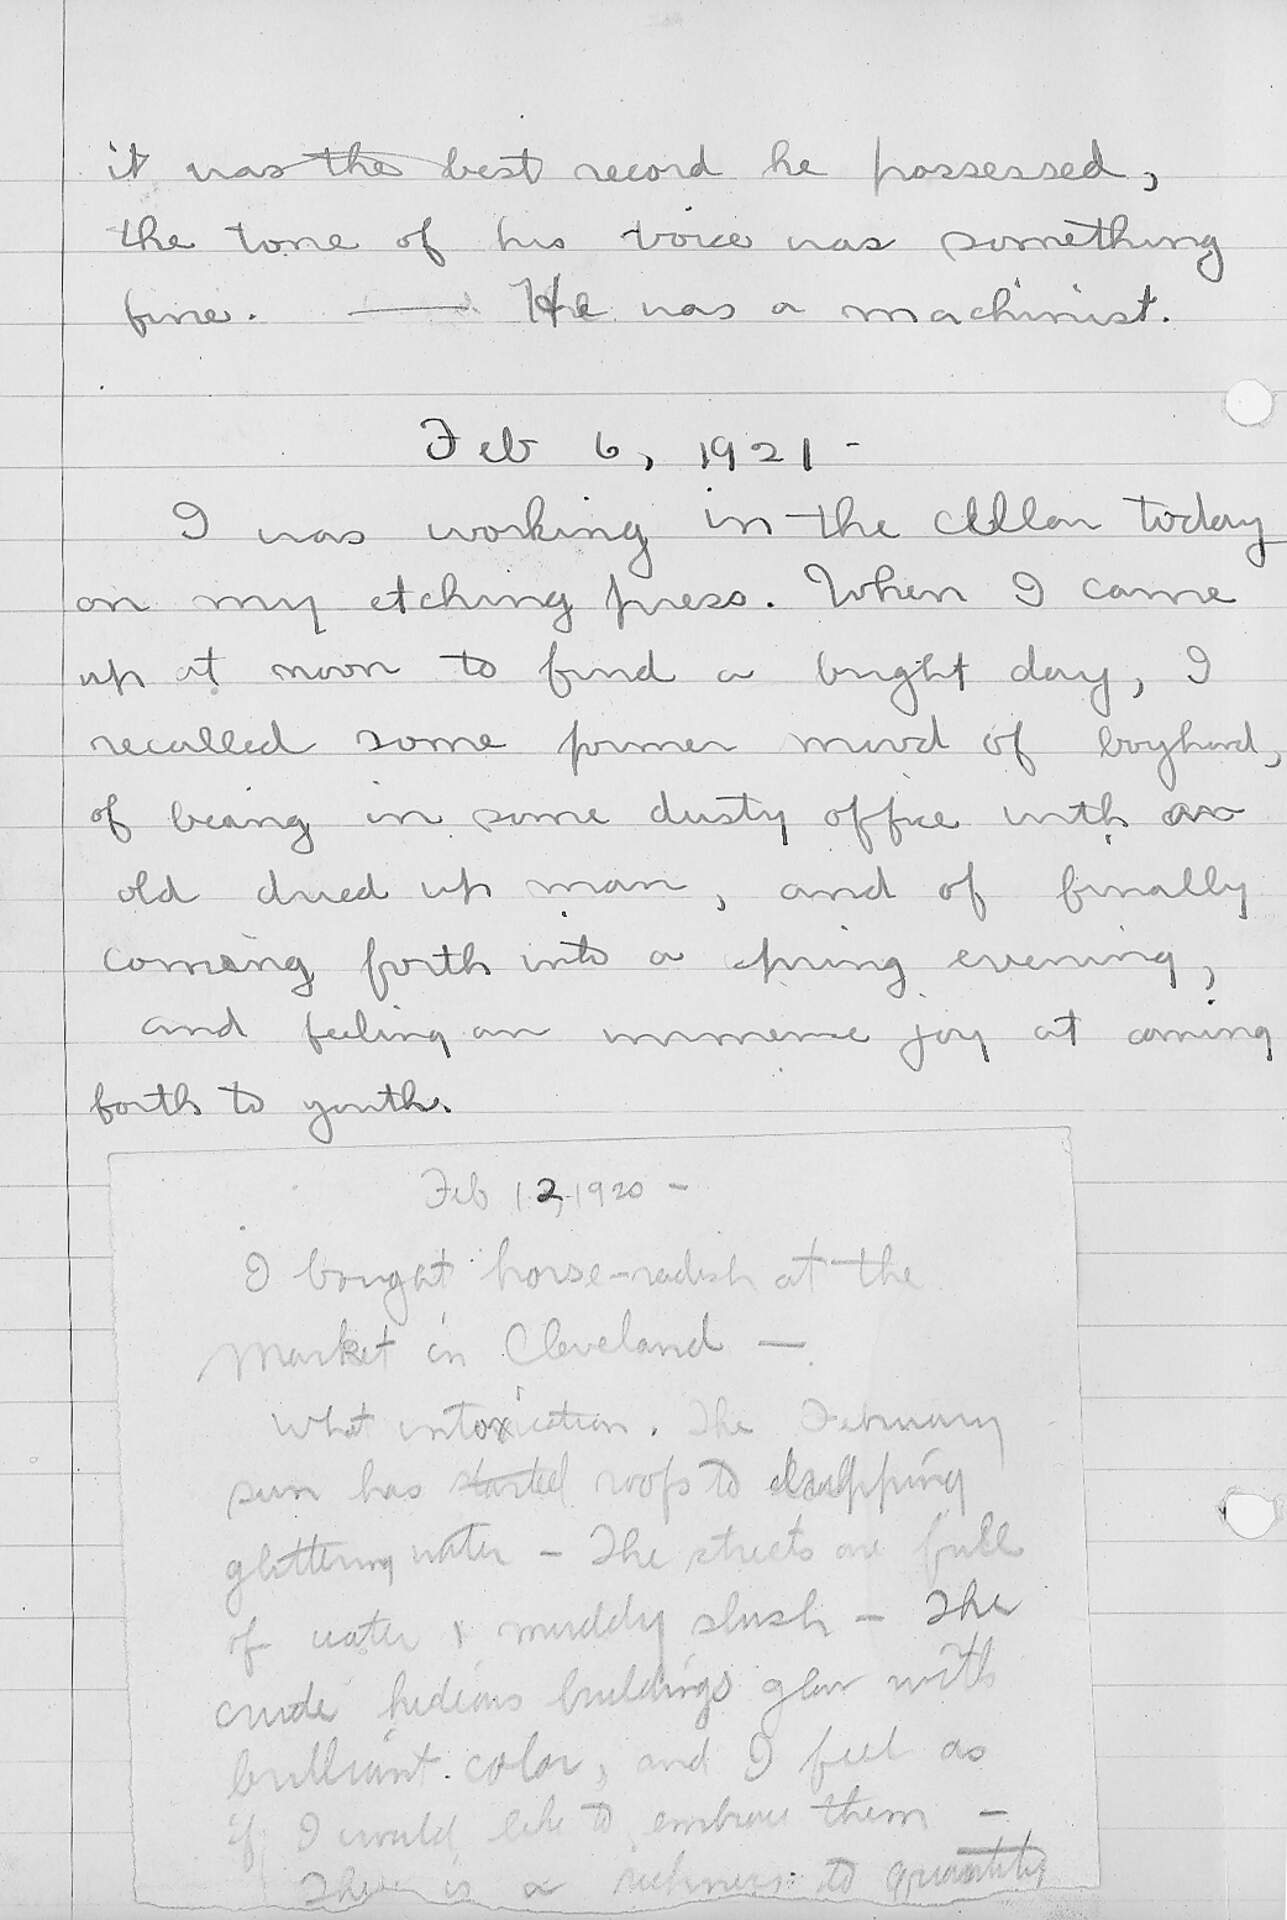 it was the best record he possessed,
the tone of his voice was something
fine. — He was a machinist.
Feb 6, 1921 -
I was working in the cellar today
on my etching press. When I came
up at noon to find a bright day, I
recalled some former mood of boyhood,
of being in some dusty office with an
old dried up man, and of finally
coming forth into a spring evening,
and feeling an immense joy at coming
forth to youth.
Feb 12, 1920 -
I bought horse-radish at the
Market in Cleveland —
What intoxication. The February
sun has started roofs to dripping
glittering water - The streets are full
of water & muddy slush - The
crude hideous buildings glow with
brilliant color, and I feel as
if I would like to embrace them -
There is a richness to quantity